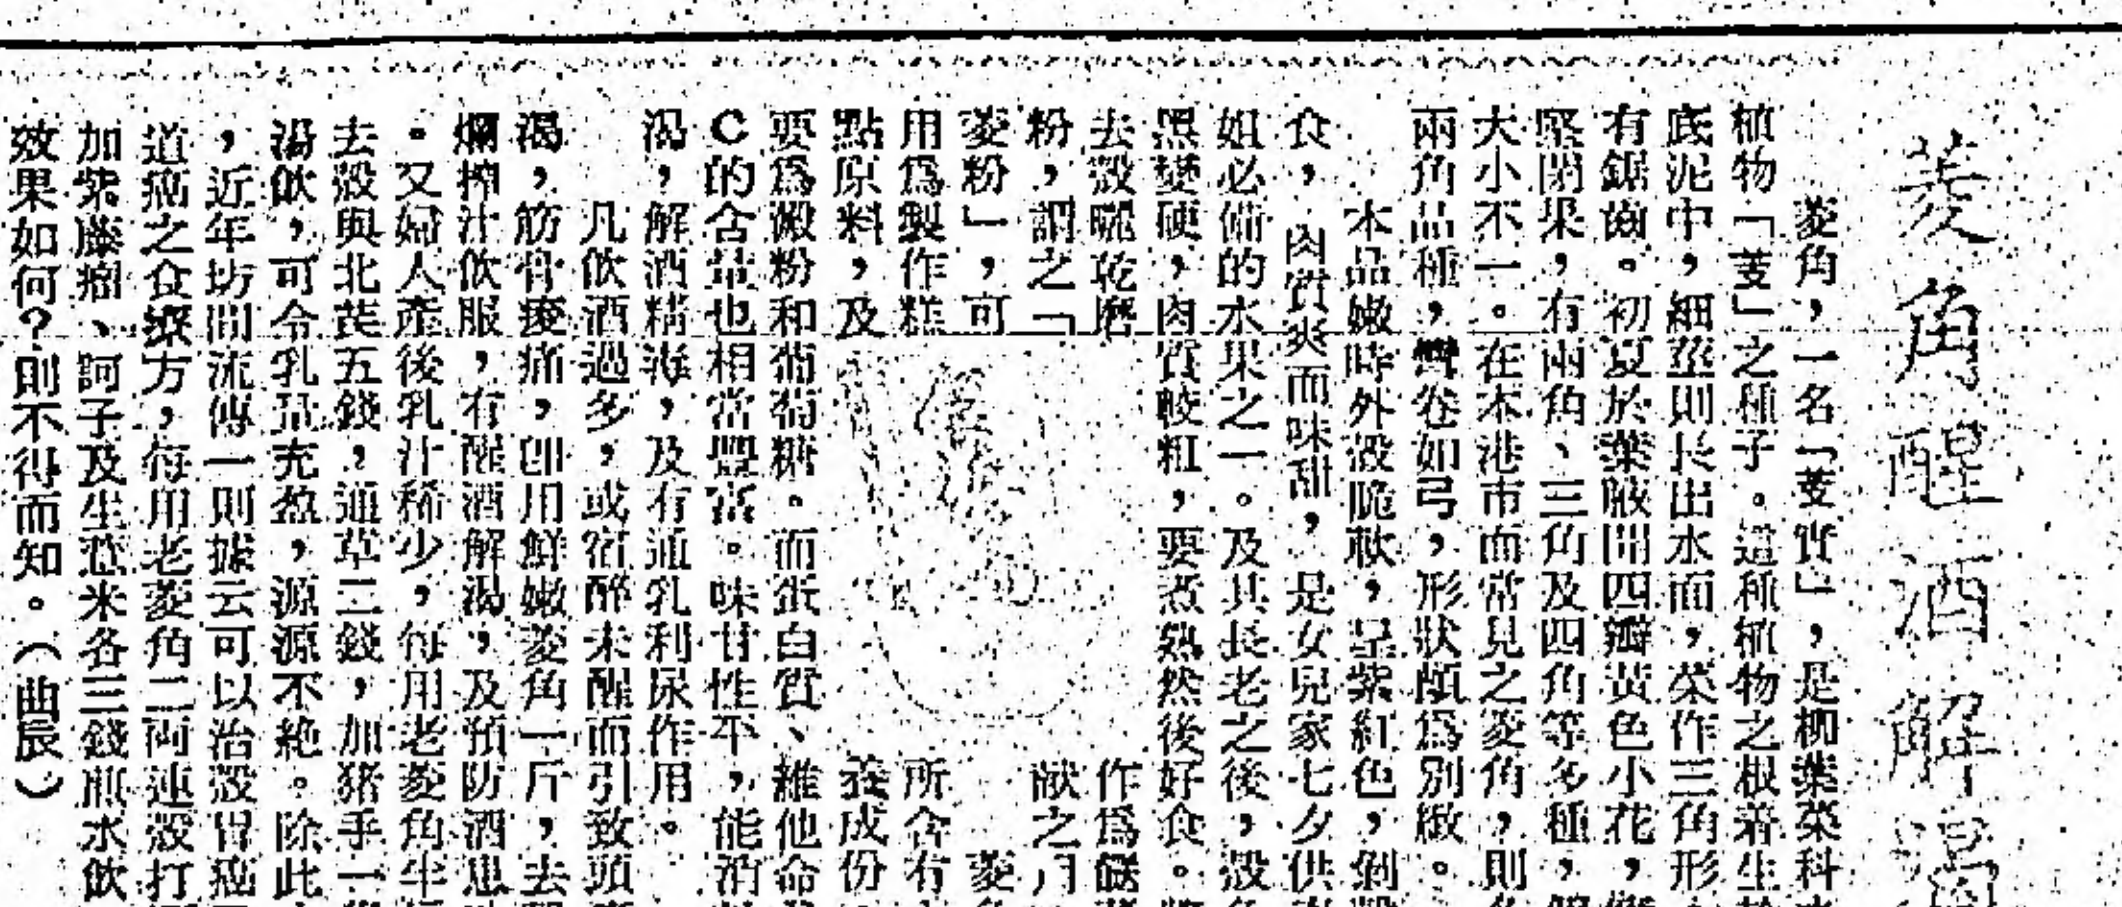 菱角醒酒解渴
菱角，一名「菱實」，是柳葉菜科
植物「菱」之種子。這種植物之根着生
底泥中，細莖則長出水面，葉作三角形
有鋸齒。初夏於葉腋開四瓣黃色小花，
堅閉果，有兩角、三角及四角等多種，
大小不一。在本港市面常見之菱角，則
兩角品種，彎卷如弓，形狀頗爲別緻。
本品嫩時外殼脆軟，呈紫紅色，剝
食，肉質爽而味甜，是女兒家七夕供
姐必備的水果之一。及其長老之後，殼
黑變硬，肉質較粗，要煮熟然後好食。
去殼曬乾磨
作爲餸
粉，謂之「
献之
菱粉」，可
菱
用爲製作糕
所含有
點原料，及
養成份
要爲澱粉和葡萄糖。而蛋白質、維他命
C的含量也相當豐富。味甘性平，能消
渴，解酒精毒，及有通乳利尿作用。
凡飲酒過多，或宿醉未醒而引致頭
渴，筋骨痠痛，卽用鮮嫩菱角一斤，去
爛搾汁飲服，有醒酒解渴，及預防酒患
。又婦人產後乳汁稀少，每用老菱角半
去殼與北芪五錢，通草二錢，加猪手一
湯飲，可令乳量充盈，源源不絶。除此
，近年坊間流傳一則據云可以治殼胃癌
道癌之食療方，每用老菱角二両連殼打
加紫藤瘤、訶子及生薏米各三錢煎水飲
效果如何？則不得而知。（曲辰）